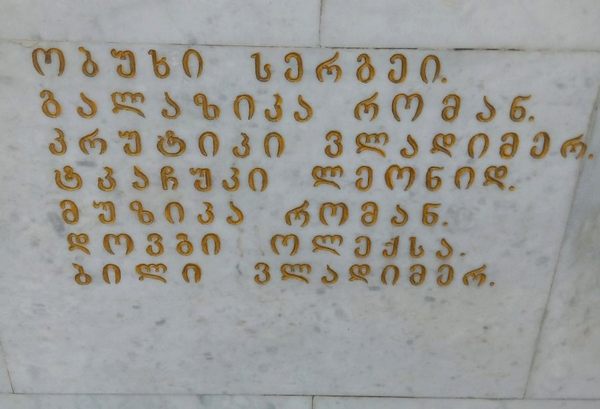 ობუხი სერგეი.
გალაზიკა რომან.
კრუტიკი ვლადიმერ.
ტკაჩუკი ლეონიდ.
მუზიკა რომან.
დოვგი ოლექსა.
ბილი ვლადიმერ.